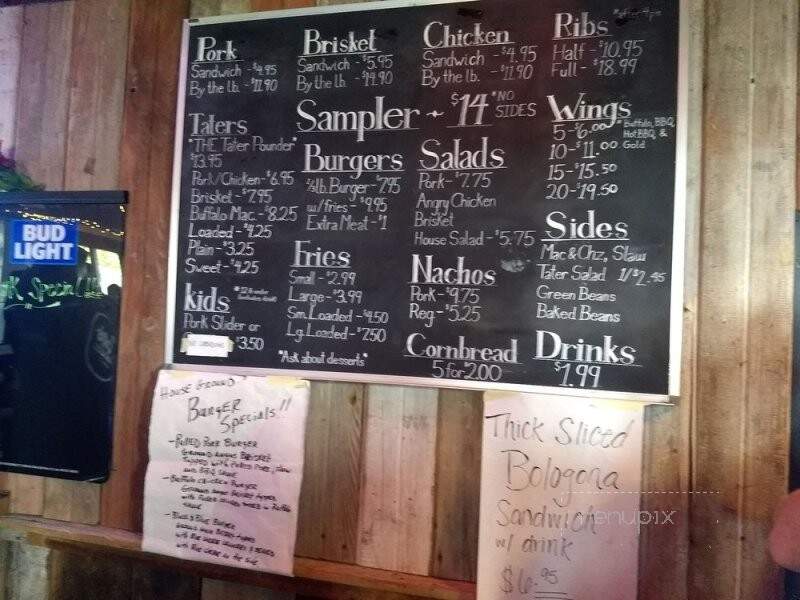 Pork
Sandwich - $4.95
By the lb. - $11.90
Brisket
Sandwich - $5.95
By the lb. - $14.90
Chicken
Sandwich - $4.95
By the lb. - $11.90
Ribs *after 4pm
Half - $10.95
Full - $18.99
Sampler - $14 *NO SIDES
Taters
*THE Tater Pounder*
$13.95
Pork/Chicken - $6.95
Brisket - $7.95
Buffalo Mac. - $8.25
Loaded - $4.25
Plain - $3.25
Sweet - $4.25
kids
Pork Slider or
$3.50
Burgers
1/3lb. Burger - $7.95
w/fries - $9.95
Extra Meat - $1
Fries
Small - $2.99
Large - $3.99
Sm. Loaded - $4.50
Lg. Loaded - $7.50
*Ask about desserts*
Salads
Pork - $7.75
Angry Chicken
Brisket
House Salad - $5.75
Nachos
Pork - $9.75
Reg - $5.25
Cornbread
5 for $2.00
Wings
5 - $6.00
10 - $11.00
15 - $15.50
20 - $19.50
*Buffalo, BBQ,
Hot BBQ, &
Gold
Sides
Mac & Chz, Slaw
Tater Salad 1/$2.45
Green Beans
Baked Beans
Drinks
$1.99
BUD
LIGHT
House Ground
Burger
Specials!!
- Pulled Pork Burger
Ground Angus Brisket
Topped with Pulled Pork, Slaw
and BBQ Sauce
- Buffalo Chicken Burger
- Black & Blue Burger
Thick Sliced
Bologona
Sandwich
w/ drink
$6.95
menupix